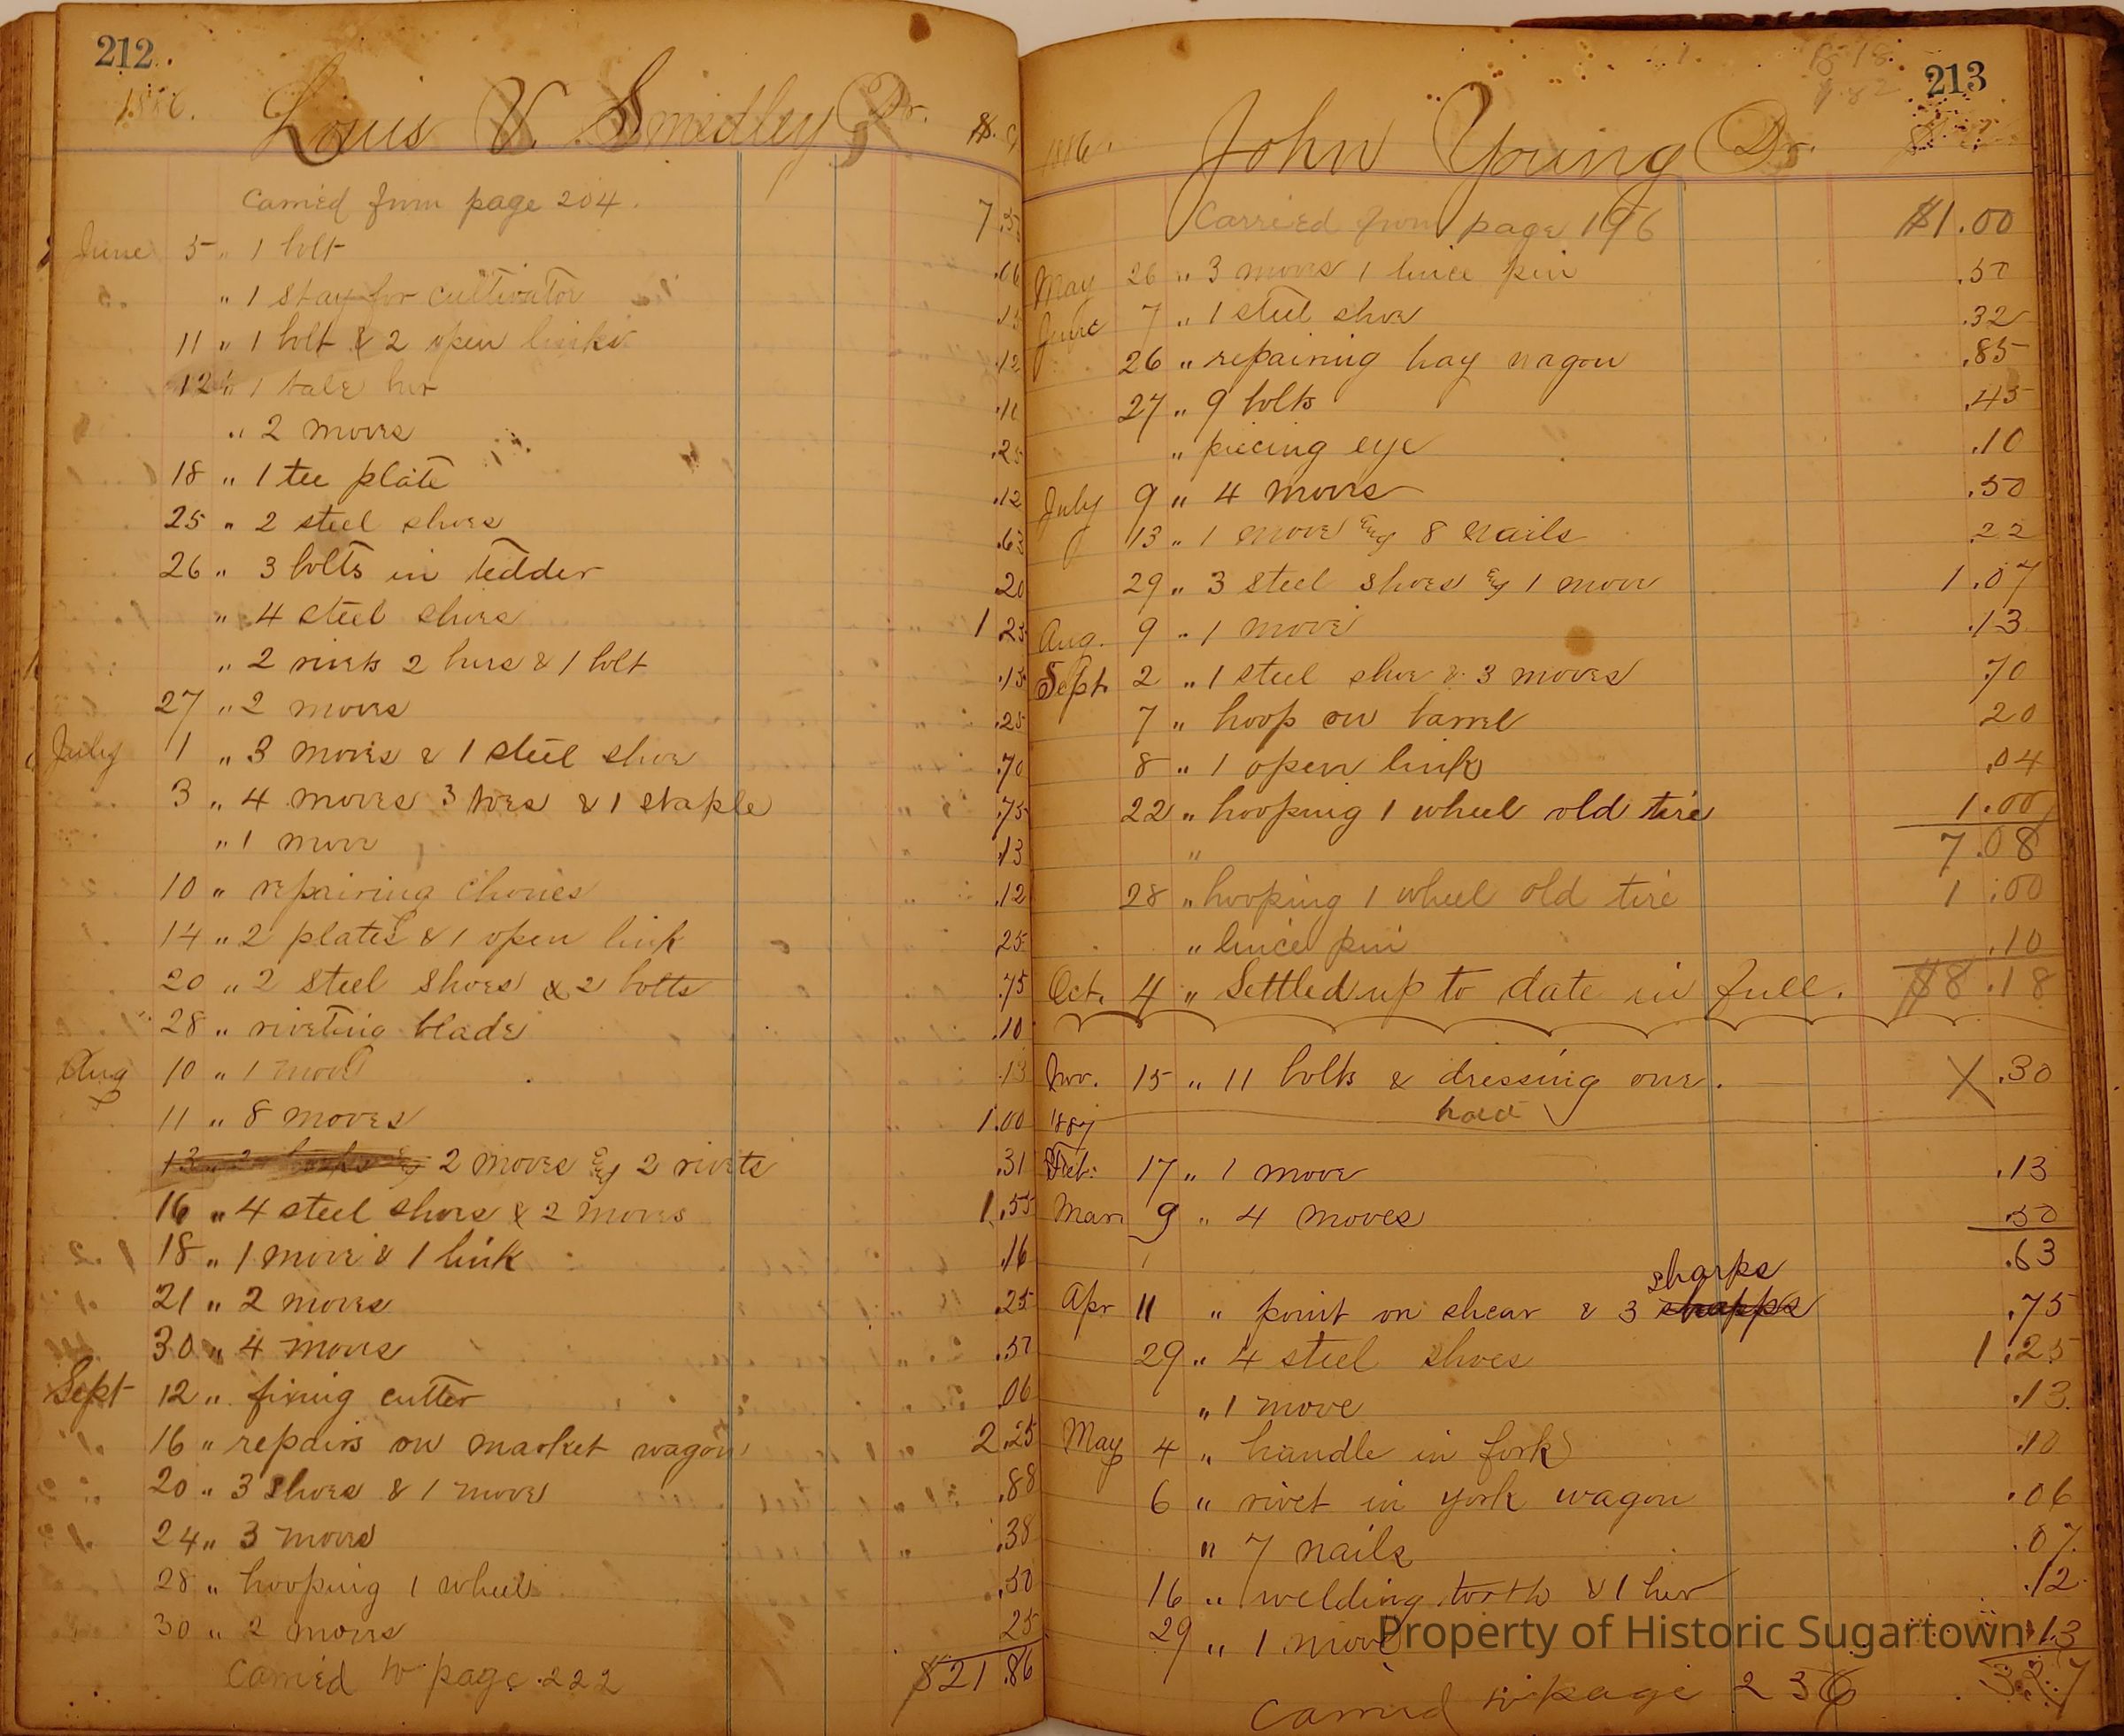 212.
1886.
Louis V. Smedley Dr. $. c
Carried from page 204. 7.5
June 5 " 1 bolt .06
" 1 stay for cultivator .15
11 " 1 bolt & 2 open links .12
12 " 1 .10
" 2 moves .25
18 " 1 tee plate .12
25 " 2 steel shoes .63
26 " 3 bolts in tedder 20
" 4 steel shoes 1 25
" 2 rivets 2 burs & 1 bolt .15
27 " 2 moves .25
July 1 " 3 moves & 1 steel shoe .70
3 " 4 moves 3 toes & 1 staple .75
" 1 move .13
10 " repairing .12
14 " 2 plates & 1 open link 25
20 " 2 steel shoes & 2 bolts .75
28 " riveting blade .10
Aug 10 " 1 move .13
11 " 8 moves 1.00
13 " 2 & 2 moves & 2 rivets .31
16 " 4 steel shoes & 2 moves 1.55
18 " 1 move & 1 link .16
21 " 2 moves .25
30 " 4 moves .50
Sept 12 " fixing cutter 06
16 " repairs on market wagon 2.25
20 " 3 shoes & 1 move .88
24 " 3 moves .38
28 " hooping 1 wheel .50
30 " 2 moves 25
Carried to page 222 $21.86
213
8.18
1886.
John Young Dr. $
Carried from page 196 $1.00
May 26 " 3 moves 1 lince pin .50
June 7 " 1 steel shoe .32
26 " repairing hay wagon .85
27 " 9 bolts .45
" piecing eye .10
July 9 " 4 moves .50
13 " 1 move & 8 nails 22
29 " 3 steel shoes & 1 move 1.07
Aug. 9 " 1 move .13
Sept. 2 " 1 steel shoe & 3 moves 70
7 " hoop on barrel 20
8 " 1 open link .04
22 " hooping 1 wheel old tire 1.00
" 7.08
28 " hooping 1 wheel old tire 1.00
" lince pin .10
Oct. 4 " Settled up to date in full. $8.18
Nov. 15 " 11 bolts & dressing one. X .30
1887
Feb. 17 " 1 move .13
Mar. 9 " 4 moves 50
.63
sharps
Apr 11 " point on shear & 3 shapps .75
29 " 4 steel shoes 1.25
" 1 move .13
May 4 " handle in fork .10
6 " rivet in york wagon .06
" 7 nails .07
16 " welding tooth & 1 bur .12
29 " 1 move .13
Carried to page 236
Property of Historic Sugartown